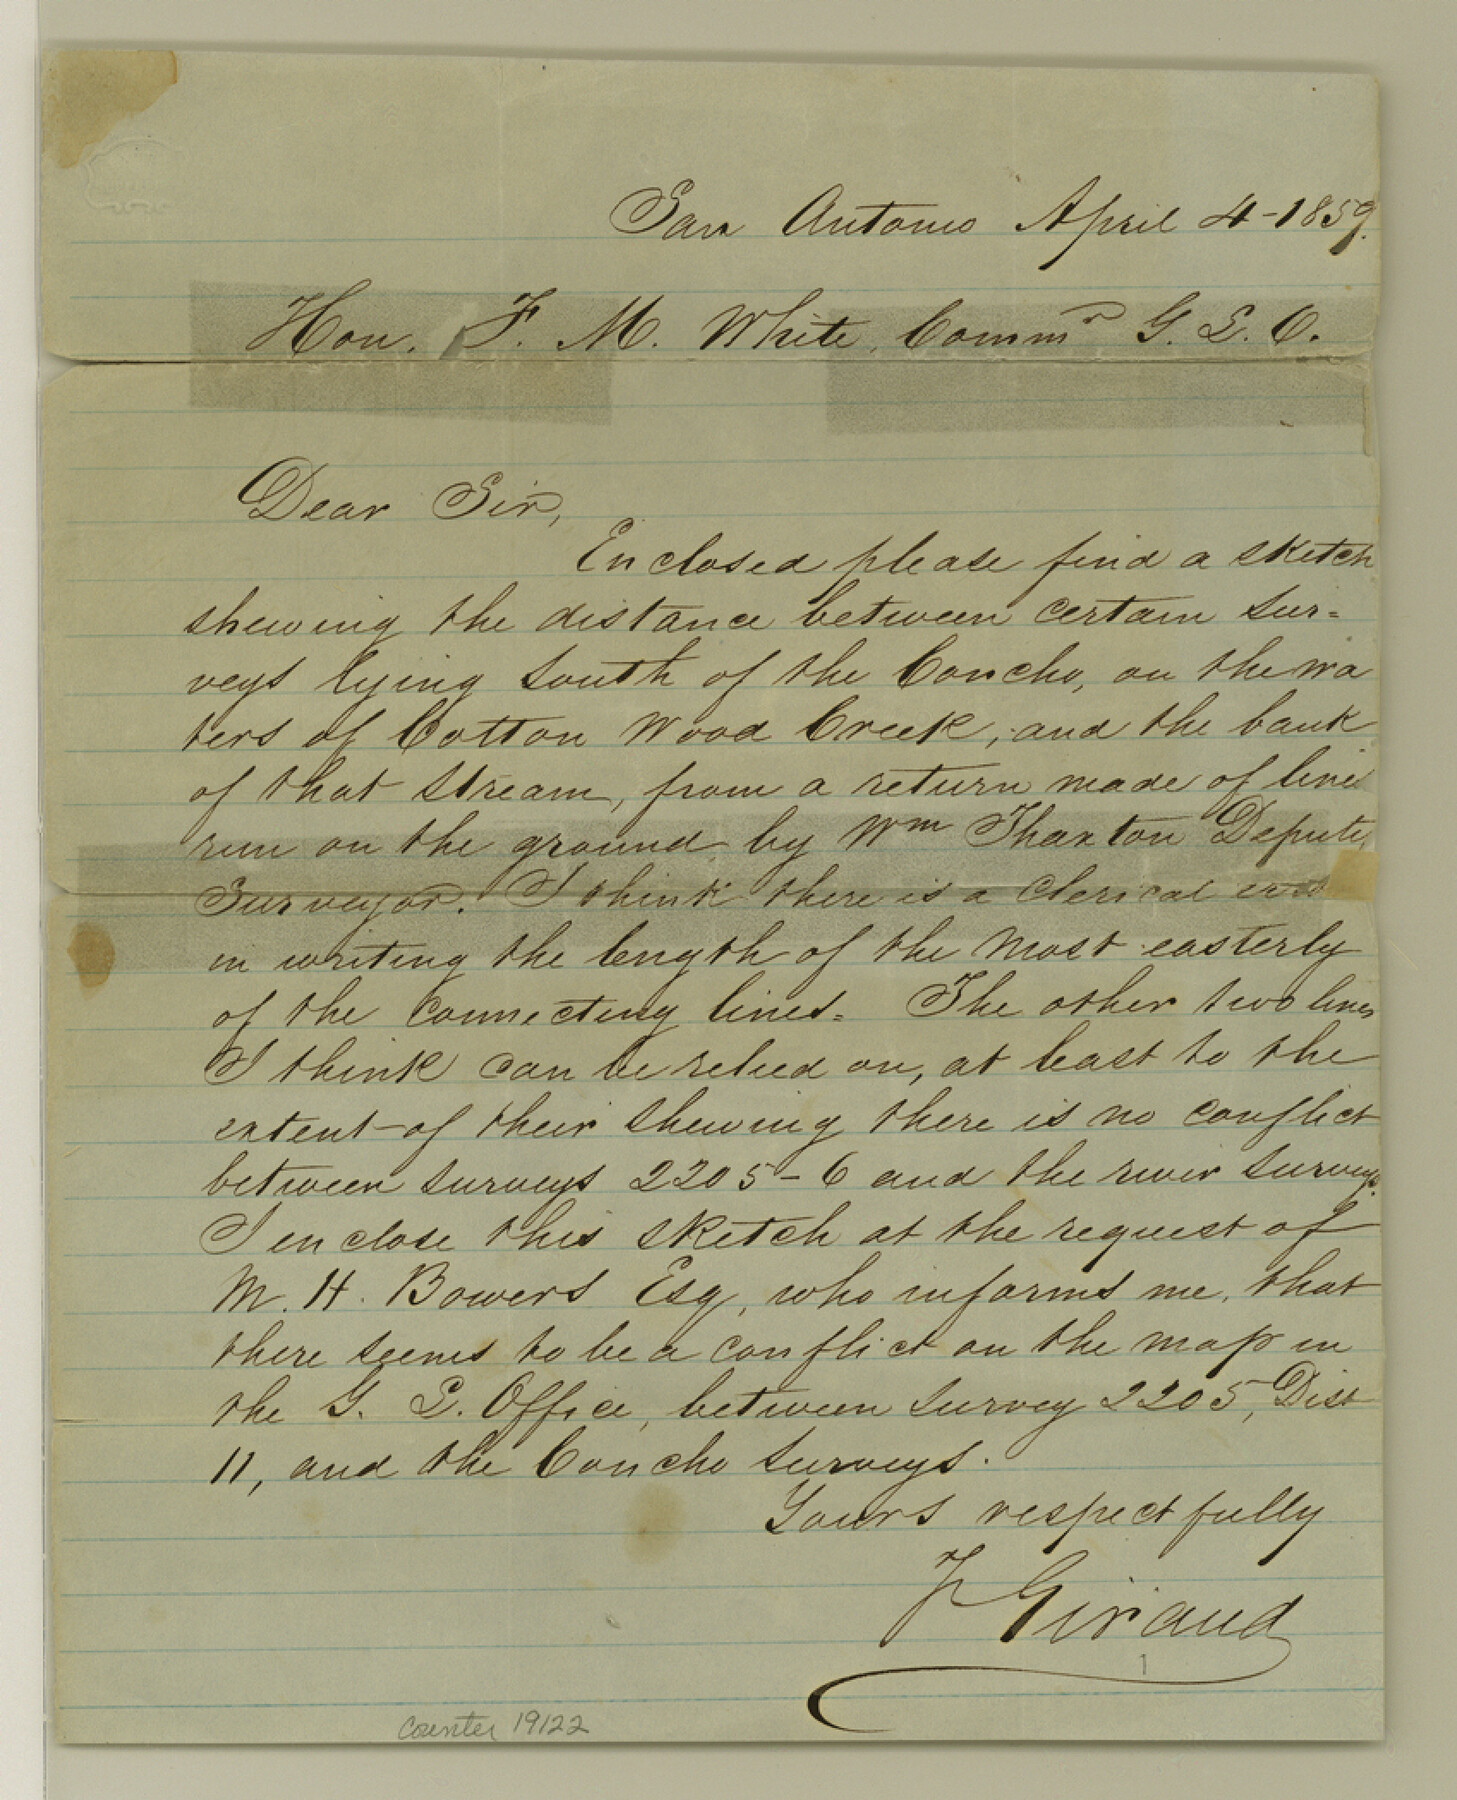 San Antonio April 4-1859.
Hon. F. M. White, Commr G. L. O.
Dear Sir,
Enclosed please find a sketch
shewing the distance between certain sur=
veys lying South of the Concho, on the wa
ters of Cotton Wood Creek, and the bank
of that stream, from a return made of lines
run on the ground by Wm Thaxton Deputy
Surveyor. I think there is a clerical error
in writing the length of the most easterly
of the connecting lines. The other two lines
I think can be relied on, at least to the
extent of their shewing there is no conflict
between surveys 2205-6 and the river surveys.
I enclose this sketch at the request of
M. H. Bowers Esq, who informs me, that
there seems to be a conflict on the map in
the G. L. Office, between survey 2205, Dist
11, and the Concho surveys.
Yours respectfully
F Giraud
1
counter 19122